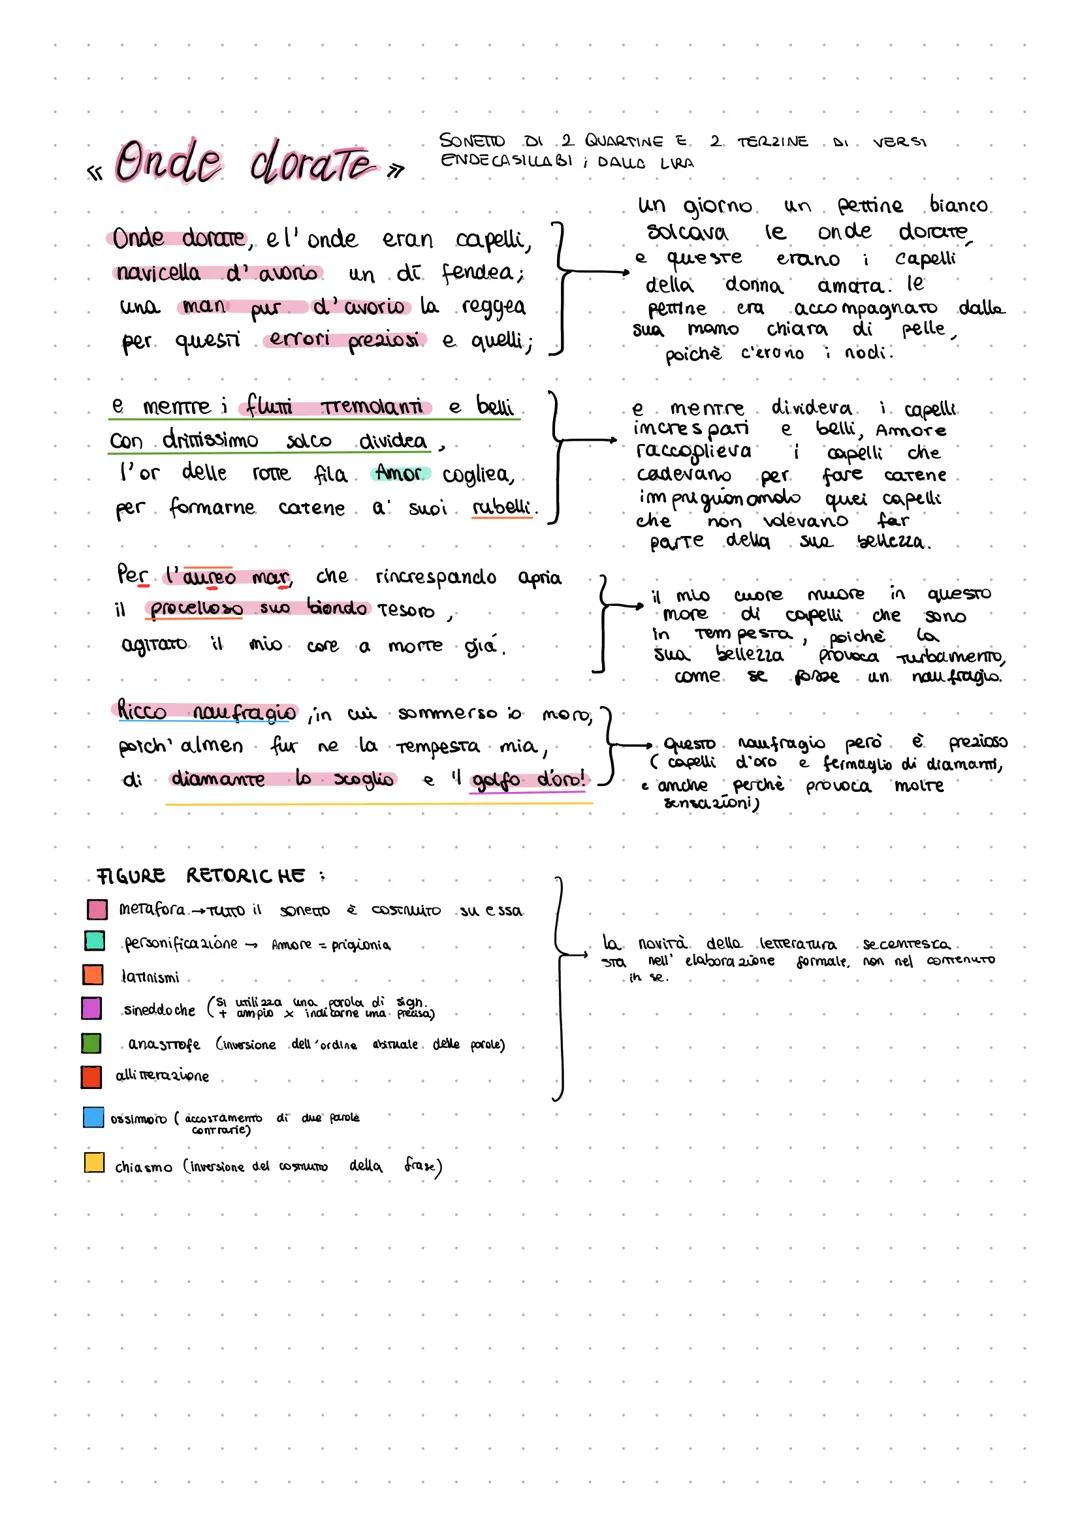 « Onde dorate »
SONETTO DI 2 QUARTINE E 2 TERZINE DI VERSI
ENDECASILLABI ; DALLA LIRA
Onde dorate, e l'onde eran capelli,
navicella d'avorio un dì fendea;
una man pur d'avorio la reggea
per questi errori preziosi e quelli;
un giorno un pettine bianco
solcava le onde dorate
e queste erano i capelli
della donna amata. le
pettine era accompagnato dalla
sua mano chiara di pelle,
poichè c'erano i nodi.
e mentre i flutti tremolanti e belli
con drittissimo solco dividea,
l'or delle rotte fila Amor cogliea,
per formarne catene a' suoi rubelli.
e mentre divideva i capelli
increspati e belli, Amore
raccoglieva i capelli che
cadevano per fare catene
imprigionando quei capelli
che non volevano far
parte della sua bellezza.
Per l'aureo mar, che rincrespando apria
il procelloso suo biondo tesoro,
agitato il mio core a morte già.
il mio cuore muore in questo
mare di capelli che sono
in tempesta, poichè la
sua bellezza provoca turbamento,
come se fosse un naufragio.
Ricco naufragio, in cui sommerso io moro,
poich'almen fur ne la tempesta mia,
di diamante lo scoglio e 'l golfo d'oro!
Questo naufragio però è prezioso
(capelli d'oro e fermaglio di diamanti,
e anche perchè provoca molte
sensazioni)
FIGURE RETORICHE :
metafora → tutto il sonetto è costruito su essa
personificazione → Amore = prigionia
latinismi
sineddoche (si utilizza una parola di sign.
+ ampio x indicarne una precisa)
anastrofe (inversione dell'ordine abituale delle parole)
allitterazione
ossimoro ( accostamento di due parole
contrarie)
chiasmo (inversione del costrutto della frase)
la novità della letteratura secentesca
sta nell'elaborazione formale, non nel contenuto
in se.